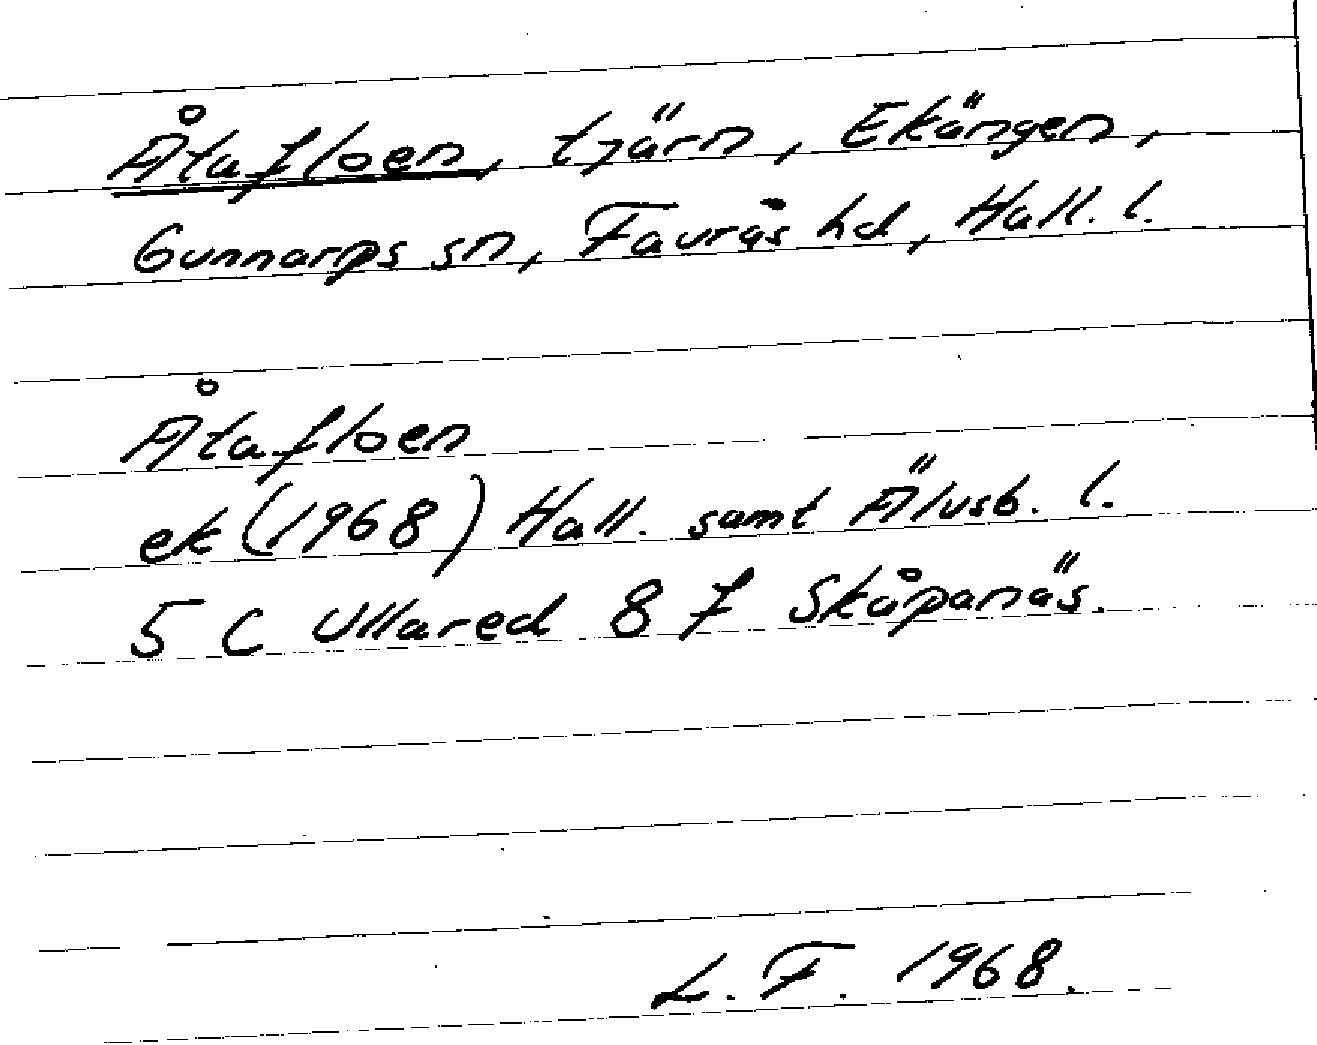 Åtafloen, tjärn, Ekängen,
Gunnarps sn, Faurås hd, Hall. l.
Åtafloen
ek (1968) Hall. samt Älvsb. l.
5 C Ullared 8 f Skåpanäs.
L. F. 1968.